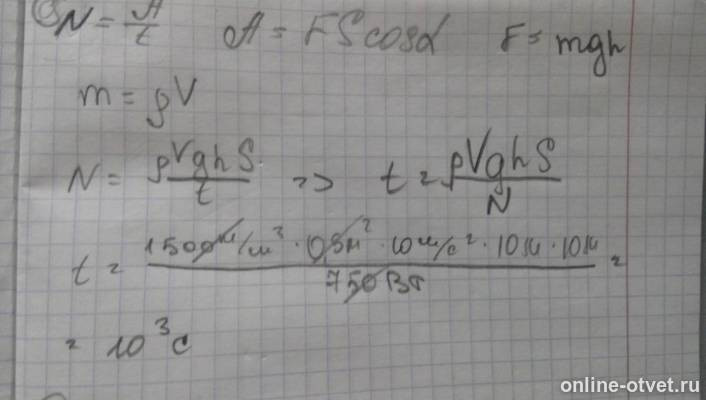 N = A/t  A = FS cosα  F = mgh
m = ρV
N = ρVghS/t => t = ρVghS/N
t = 1500 кг/м³ · 0,5м² · 10м/с² · 10м · 10м / 750Вт =
= 10³ с
online-otvet.ru